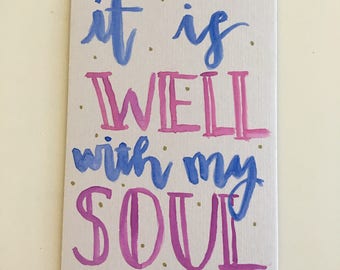 it is
WELL
with my
SOUL